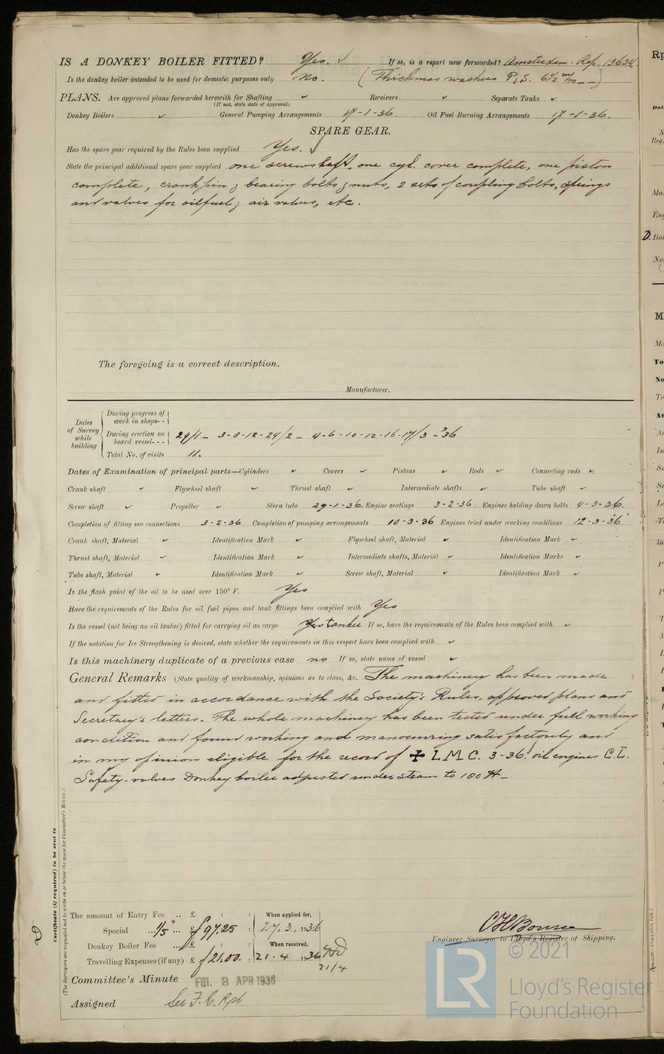 IS A DONKEY BOILER FITTED? Yes. If so, is a report now forwarded? Amsterdam Rep. 13634.
Is the donkey boiler intended to be used for domestic purposes only No. (Thickness washers P.S. 6½ m/m)
PLANS. Are approved plans forwarded herewith for Shafting Receivers Separate Tanks
(If not, state date of approval)
Donkey Boilers General Pumping Arrangements 17-1-36 Oil Fuel Burning Arrangements 17-1-36.
SPARE GEAR.
Has the spare gear required by the Rules been supplied Yes.
State the principal additional spare gear supplied one screwshaft, one cyl. cover complete, one piston
complete, crankpin & bearing bolts & nuts, 2 sets of coupling bolts, springs
and valves for oilfuel & air valves, etc.
The foregoing is a correct description,
Manufacturer.
Dates of Survey while building
During progress of work in shops - -
During erection on board vessel - - - 29/1 - 3-8-12-24/2 - 4-6-10-12-16-17/3 - 36
Total No. of visits 11.
Dates of Examination of principal parts—Cylinders Covers Pistons Rods Connecting rods
Crank shaft Flywheel shaft Thrust shaft Intermediate shafts Tube shaft
Screw shaft Propeller Stern tube 29-1-36 Engine seatings 3-2-36 Engines holding down bolts 4-3-36.
Completion of fitting sea connections 3-2-36 Completion of pumping arrangements 10-3-36 Engines tried under working conditions 12-3-36
Crank shaft, Material Identification Mark Flywheel shaft, Material Identification Mark
Thrust shaft, Material Identification Mark Intermediate shafts, Material Identification Marks
Tube shaft, Material Identification Mark Screw shaft, Material Identification Mark
Is the flash point of the oil to be used over 150° F. Yes
Have the requirements of the Rules for oil fuel pipes and tank fittings been complied with Yes
Is the vessel (not being an oil tanker) fitted for carrying oil as cargo tanker If so, have the requirements of the Rules been complied with
If the notation for Ice Strengthening is desired, state whether the requirements in this respect have been complied with
Is this machinery duplicate of a previous case no If so, state name of vessel
General Remarks (State quality of workmanship, opinions as to class, &c. The machinery has been made )
and fitted in accordance with the Society's Rules, approved plans and
Secretary's letters. The whole machinery has been tested under full working
condition and found working and manoeuvring satisfactorily and
in my opinion eligible for the record of ✠ L.M.C. 3-36. oil engines C.L.
Safety valves Donkey boiler adjusted under steam to 100 lb -
Certificate (if required) to be sent to
(The Surveyors are requested not to write on or below the space for Committee's Minute.)
The amount of Entry Fee .. £ : : When applied for,
Special 1/5 .. £ f 97.25 27.3.1936
Donkey Boiler Fee .. £ : : When received,
Travelling Expenses (if any) £ f 21.00 21.4 1936
21/4
Engineer Surveyor to Lloyd's Register of Shipping.
Committee's Minute FRI. 3 APR 1936
Assigned See F.E. Rpt
© 2021
LR
Lloyd's Register
Foundation